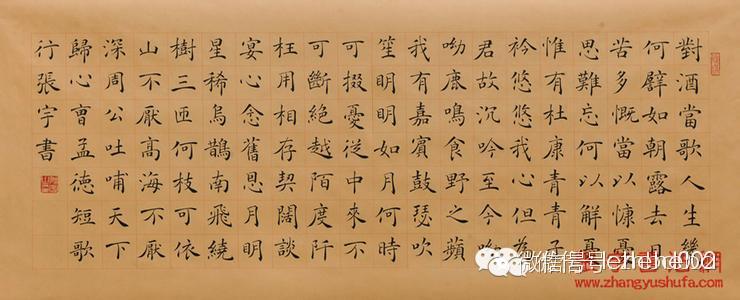 對酒當歌人生幾
何譬如朝露去日
苦多慨當以慷憂
思難忘何以解憂
惟有杜康青青子
衿悠悠我心但為
君故沉吟至今呦
呦鹿鳴食野之蘋
我有嘉賓鼓瑟吹
笙明明如月何時
可掇憂從中來不
可斷絕越陌度阡
枉用相存契闊談
宴心念舊恩月明
星稀烏鵲南飛繞
樹三匝何枝可依
山不厭高海不厭
深周公吐哺天下
歸心曹孟德短歌
行張宇書
www.zhangyushufa.com